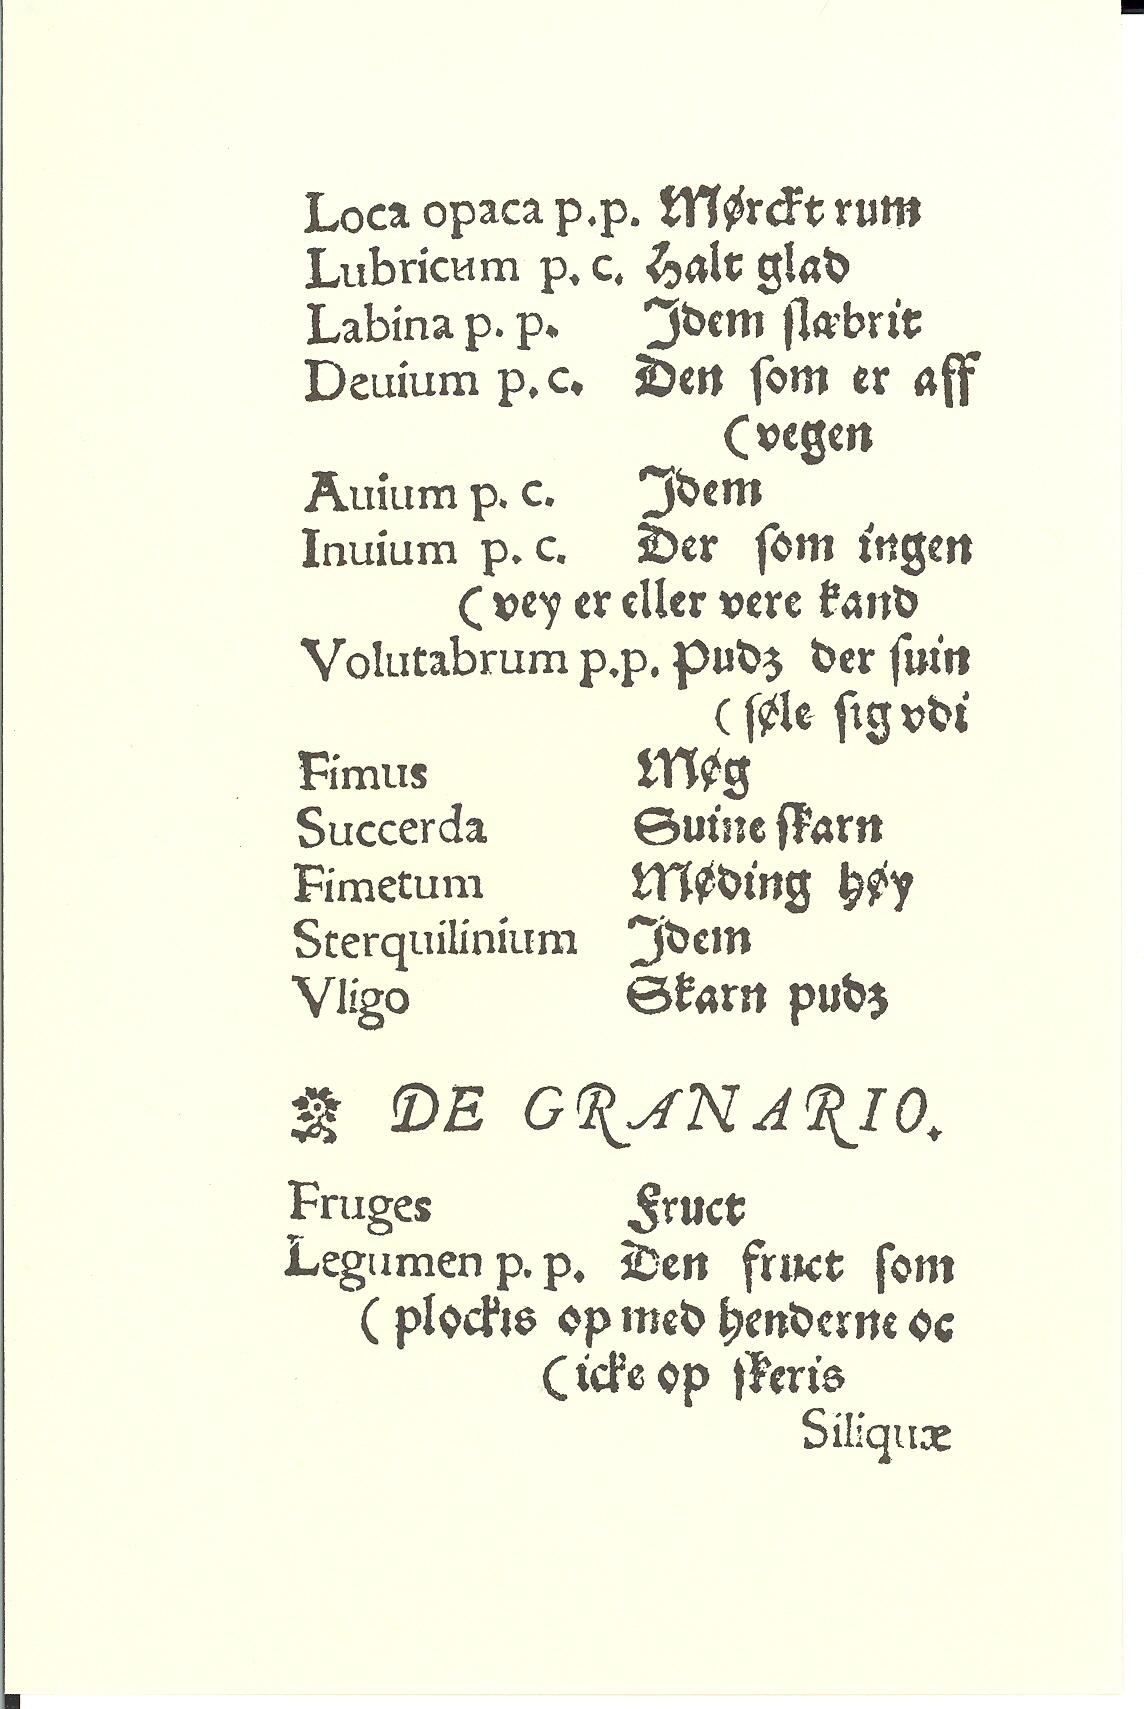 Loca opaca p.p. Mørckt rum
Lubricum p. c. Halt glad
Labina p. p. Jdem ſlæbrit
Deuium p. c. Den ſom er aff
(vegen
Auium p. c. Jdem
Inuium p. c. Der ſom ingen
(vey er eller vere kand
Volutabrum p.p. Pudʒ der ſuin
(ſøle ſig vdi
Fimus Møg
Succerda Suine ſkarn
Fimetum Møding høy
Sterquilinium Jdem
Vligo Skarn pudʒ
DE GRANARIO.
Fruges Fruct
Legumen p. p. Den fruct ſom
(plockis op med henderne oc
(icke op ſkeris
Siliquæ